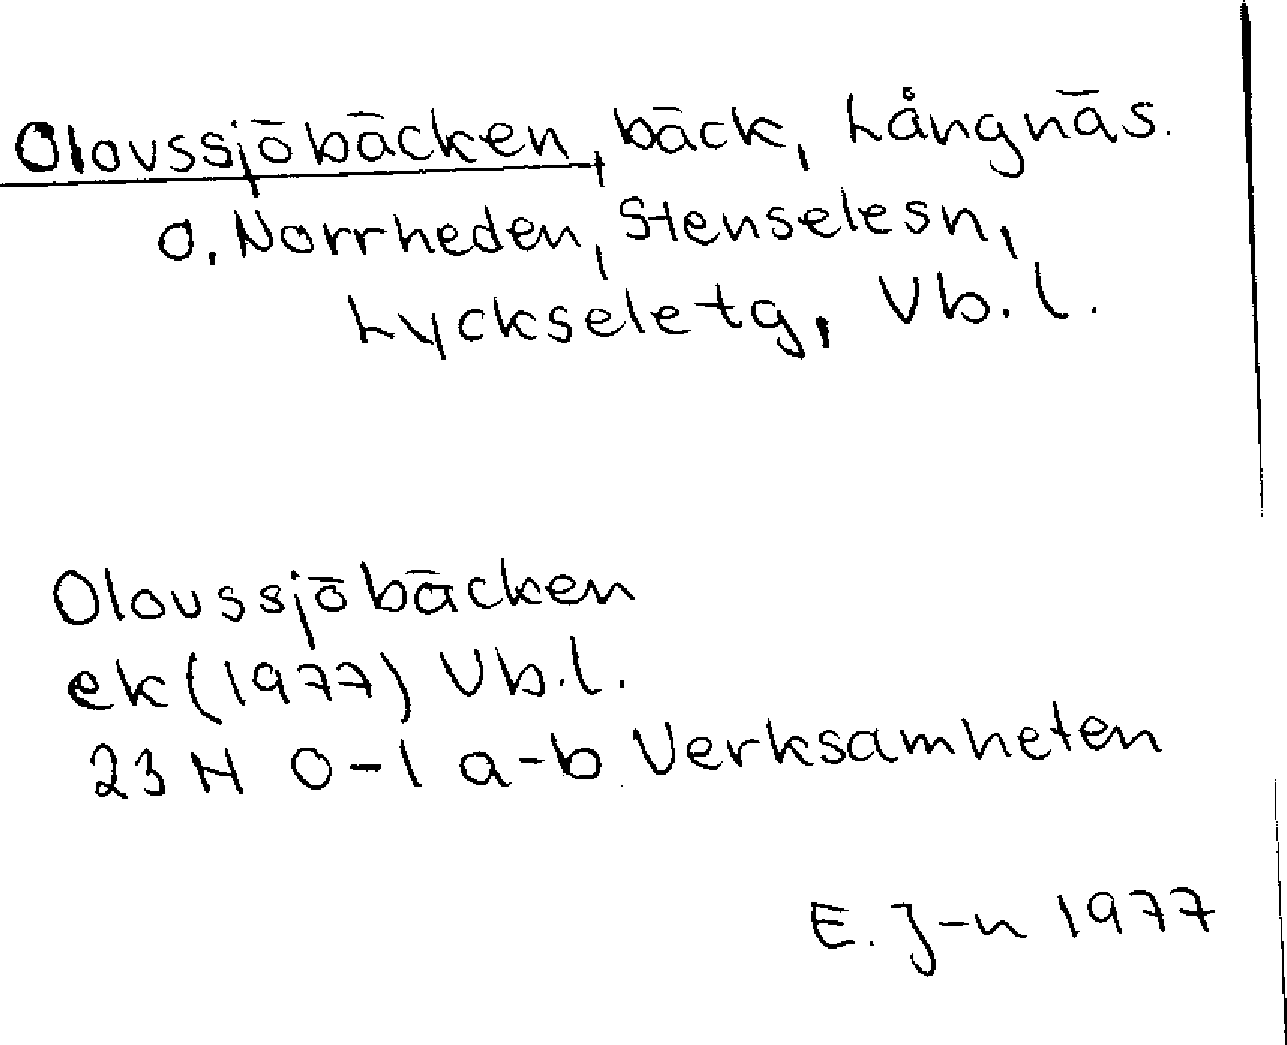 Olovssjöbäcken, bäck, Långnäs.
o. Norrheden, Stenselesn,
Lyckseletg, Vb. l.
Olovssjöbäcken
ek (1977) Vb.l.
23 H 0-1 a-b Verksamheten
E. J-n 1977